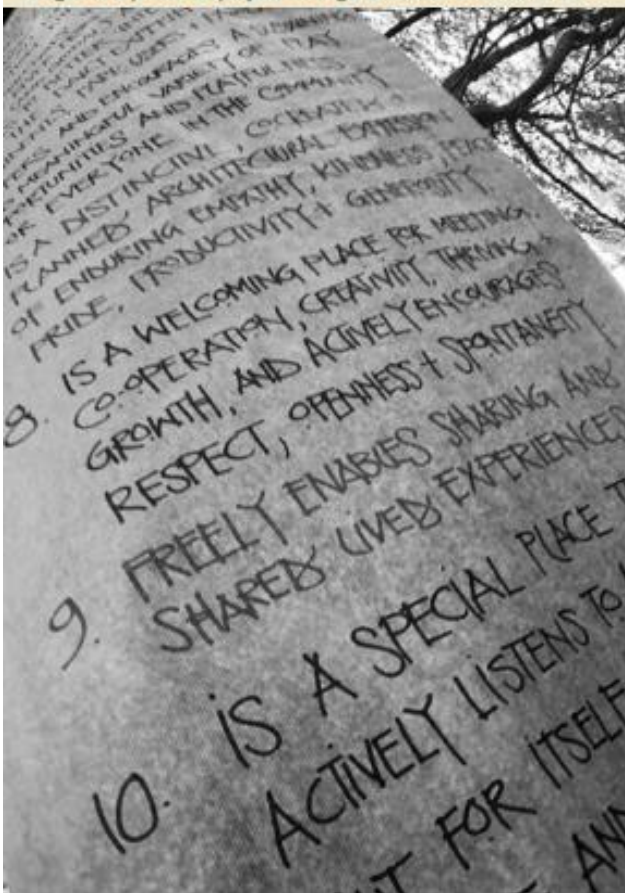 AND ENCOURAGES A
MEANINGFUL VARIETY OF PLAY
OPPORTUNITIES AND PLAYFULNESS
FOR EVERYONE IN THE COMMUNITY
IS A DISTINCTIVE, COCREATED +
PLANNED ARCHITECTURAL EXPRESSION
OF ENDURING EMPATHY, KINDNESS,
PRIDE, PRODUCTIVITY + GENEROSITY.
8. IS A WELCOMING PLACE FOR MEETING,
CO-OPERATION, CREATIVITY, THRIVING +
GROWTH, AND ACTIVELY ENCOURAGES
RESPECT, OPENNESS + SPONTANEITY.
9. FREELY ENABLES SHARING AND
SHARED LIVED EXPERIENCES
10. IS A SPECIAL PLACE
ACTIVELY LISTENS TO
FOR ITSELF
AND